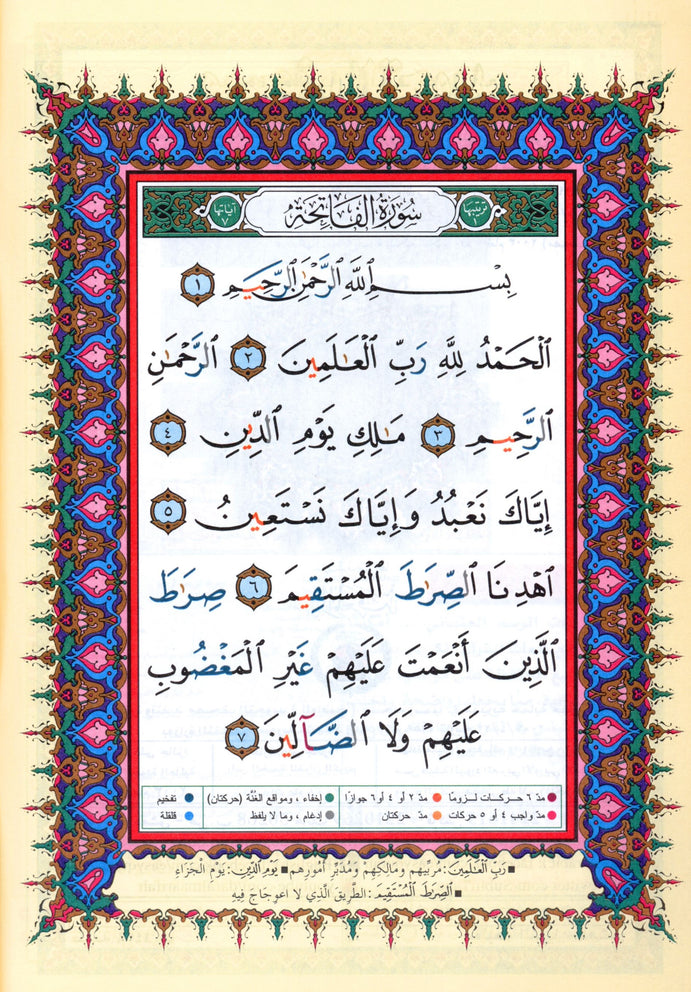 ترتيبها ١ سُورَةُ الفَاتِحَةِ آياتها ٧
بِسْمِ ٱللَّهِ ٱلرَّحْمَٰنِ ٱلرَّحِيمِ ١
ٱلْحَمْدُ لِلَّهِ رَبِّ ٱلْعَٰلَمِينَ ٢ ٱلرَّحْمَٰنِ
ٱلرَّحِيمِ ٣ مَٰلِكِ يَوْمِ ٱلدِّينِ ٤
إِيَّاكَ نَعْبُدُ وَإِيَّاكَ نَسْتَعِينُ ٥
ٱهْدِنَا ٱلصِّرَٰطَ ٱلْمُسْتَقِيمَ ٦ صِرَٰطَ
ٱلَّذِينَ أَنْعَمْتَ عَلَيْهِمْ غَيْرِ ٱلْمَغْضُوبِ
عَلَيْهِمْ وَلَا ٱلضَّآلِّينَ ٧
مدّ ٦ حركات لزومًا مدّ ٢ أو ٤ أو ٦ جوازًا إخفاء ، ومواقع الغُنَّة (حركتان) تفخيم
مدّ واجب ٤ أو ٥ حركات مدّ حركتان إدغام ، وما لا يلفظ قلقلة
رَبِّ ٱلْعَٰلَمِينَ: مُرَبِّيهِم وَمَالِكِهِمْ وَمُدَبِّرِ أُمُورِهِم يَوْمِ الدِّينِ: يَوْمِ الْجَزَاءِ
ٱلصِّرَٰطَ ٱلْمُسْتَقِيمَ: الطَّرِيقَ الَّذِي لَا اعْوِجَاجَ فِيهِ